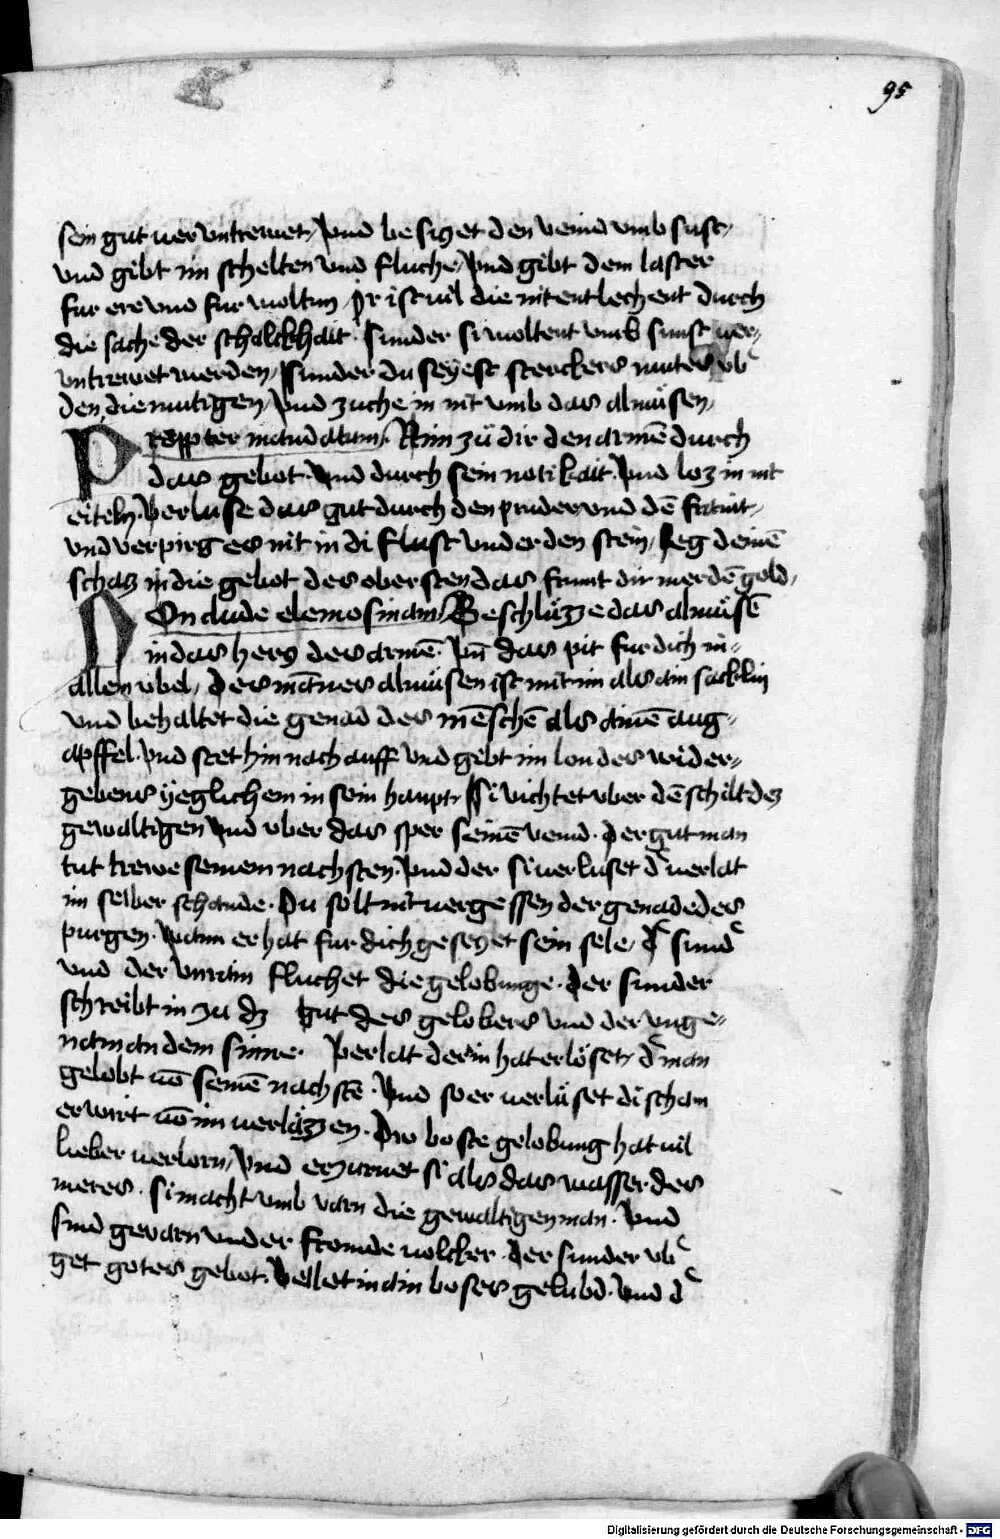 95
sein gut ver vntrewet / vnd be siczet den veind vmb sust /
vnd gibt im schelten vnd fluche / vnd gibt dem laster
fur ere vnd fur woltun / Ir ist vil die nit entlechent durch
die sache der schalckhait . Sunder si woltent vmb sunst ver /
vntrewet werden / Sunder du seyest sterckers mutes vb͛
den diemutigen / vnd zuche in nit vmb das almůsen /
Propter mandatum / Nim zů dir den armē durch
das gebot . vnd durch sein notikait . vnd loz in nit
eiteln . Verluse das gut durch den pruder vnd dē frůnt /
vnd verpirg es nit in di flust vnder den stein / Leg deinē
schatz in die gebot des obersten das frumt dir mer dē gold /
Conclude elemosinam / Beschlůzze das almůsē
in das hercz des armē . vn̄ das pit fur dich in /
allem vbel / Des mānes almůsen ist mit im als ain sacklin
vnd behaltet die genad des mēschē als ainē aug /
apffel . vnd stet hin nach auff vnd gibt im lon des wider /
gebens yeglichem in sein haupt / Si vichtet vber dē schilt dez
gewaltigen vnd vber das sper seinē veind . Der gut man
tut trewe seinem nachsten . vnd der si verluset d͛ verlat
im selber schande . Du solt nit vergessen der genade des
purgen . wann er hat fur dich geseczet sein sele / d͛ sund͛
vnd der vnrain fluchet die gelobunge . Der sunder
schreibt in zu dz gut des gelobers vnd der vnge /
nam an dem sinne . Verlat der in hat erlöset / d͛ man
gelobt vō seinē nachstē . vnd so er verlůset di scham
er wirt vō im verlazzen . Die boste gelobung hat vil
lieber verlorn / vnd erzurnet si als das wasser des
meres . Si macht vmb varn die gewaltigen man . vnd
sind gevarn vnder fromde volcker . Der sunder vb͛
get gotes gebot . vellet in ain boses gelubd . vnd d͛
Digitalisierung gefördert durch die Deutsche Forschungsgemeinschaft - DFG